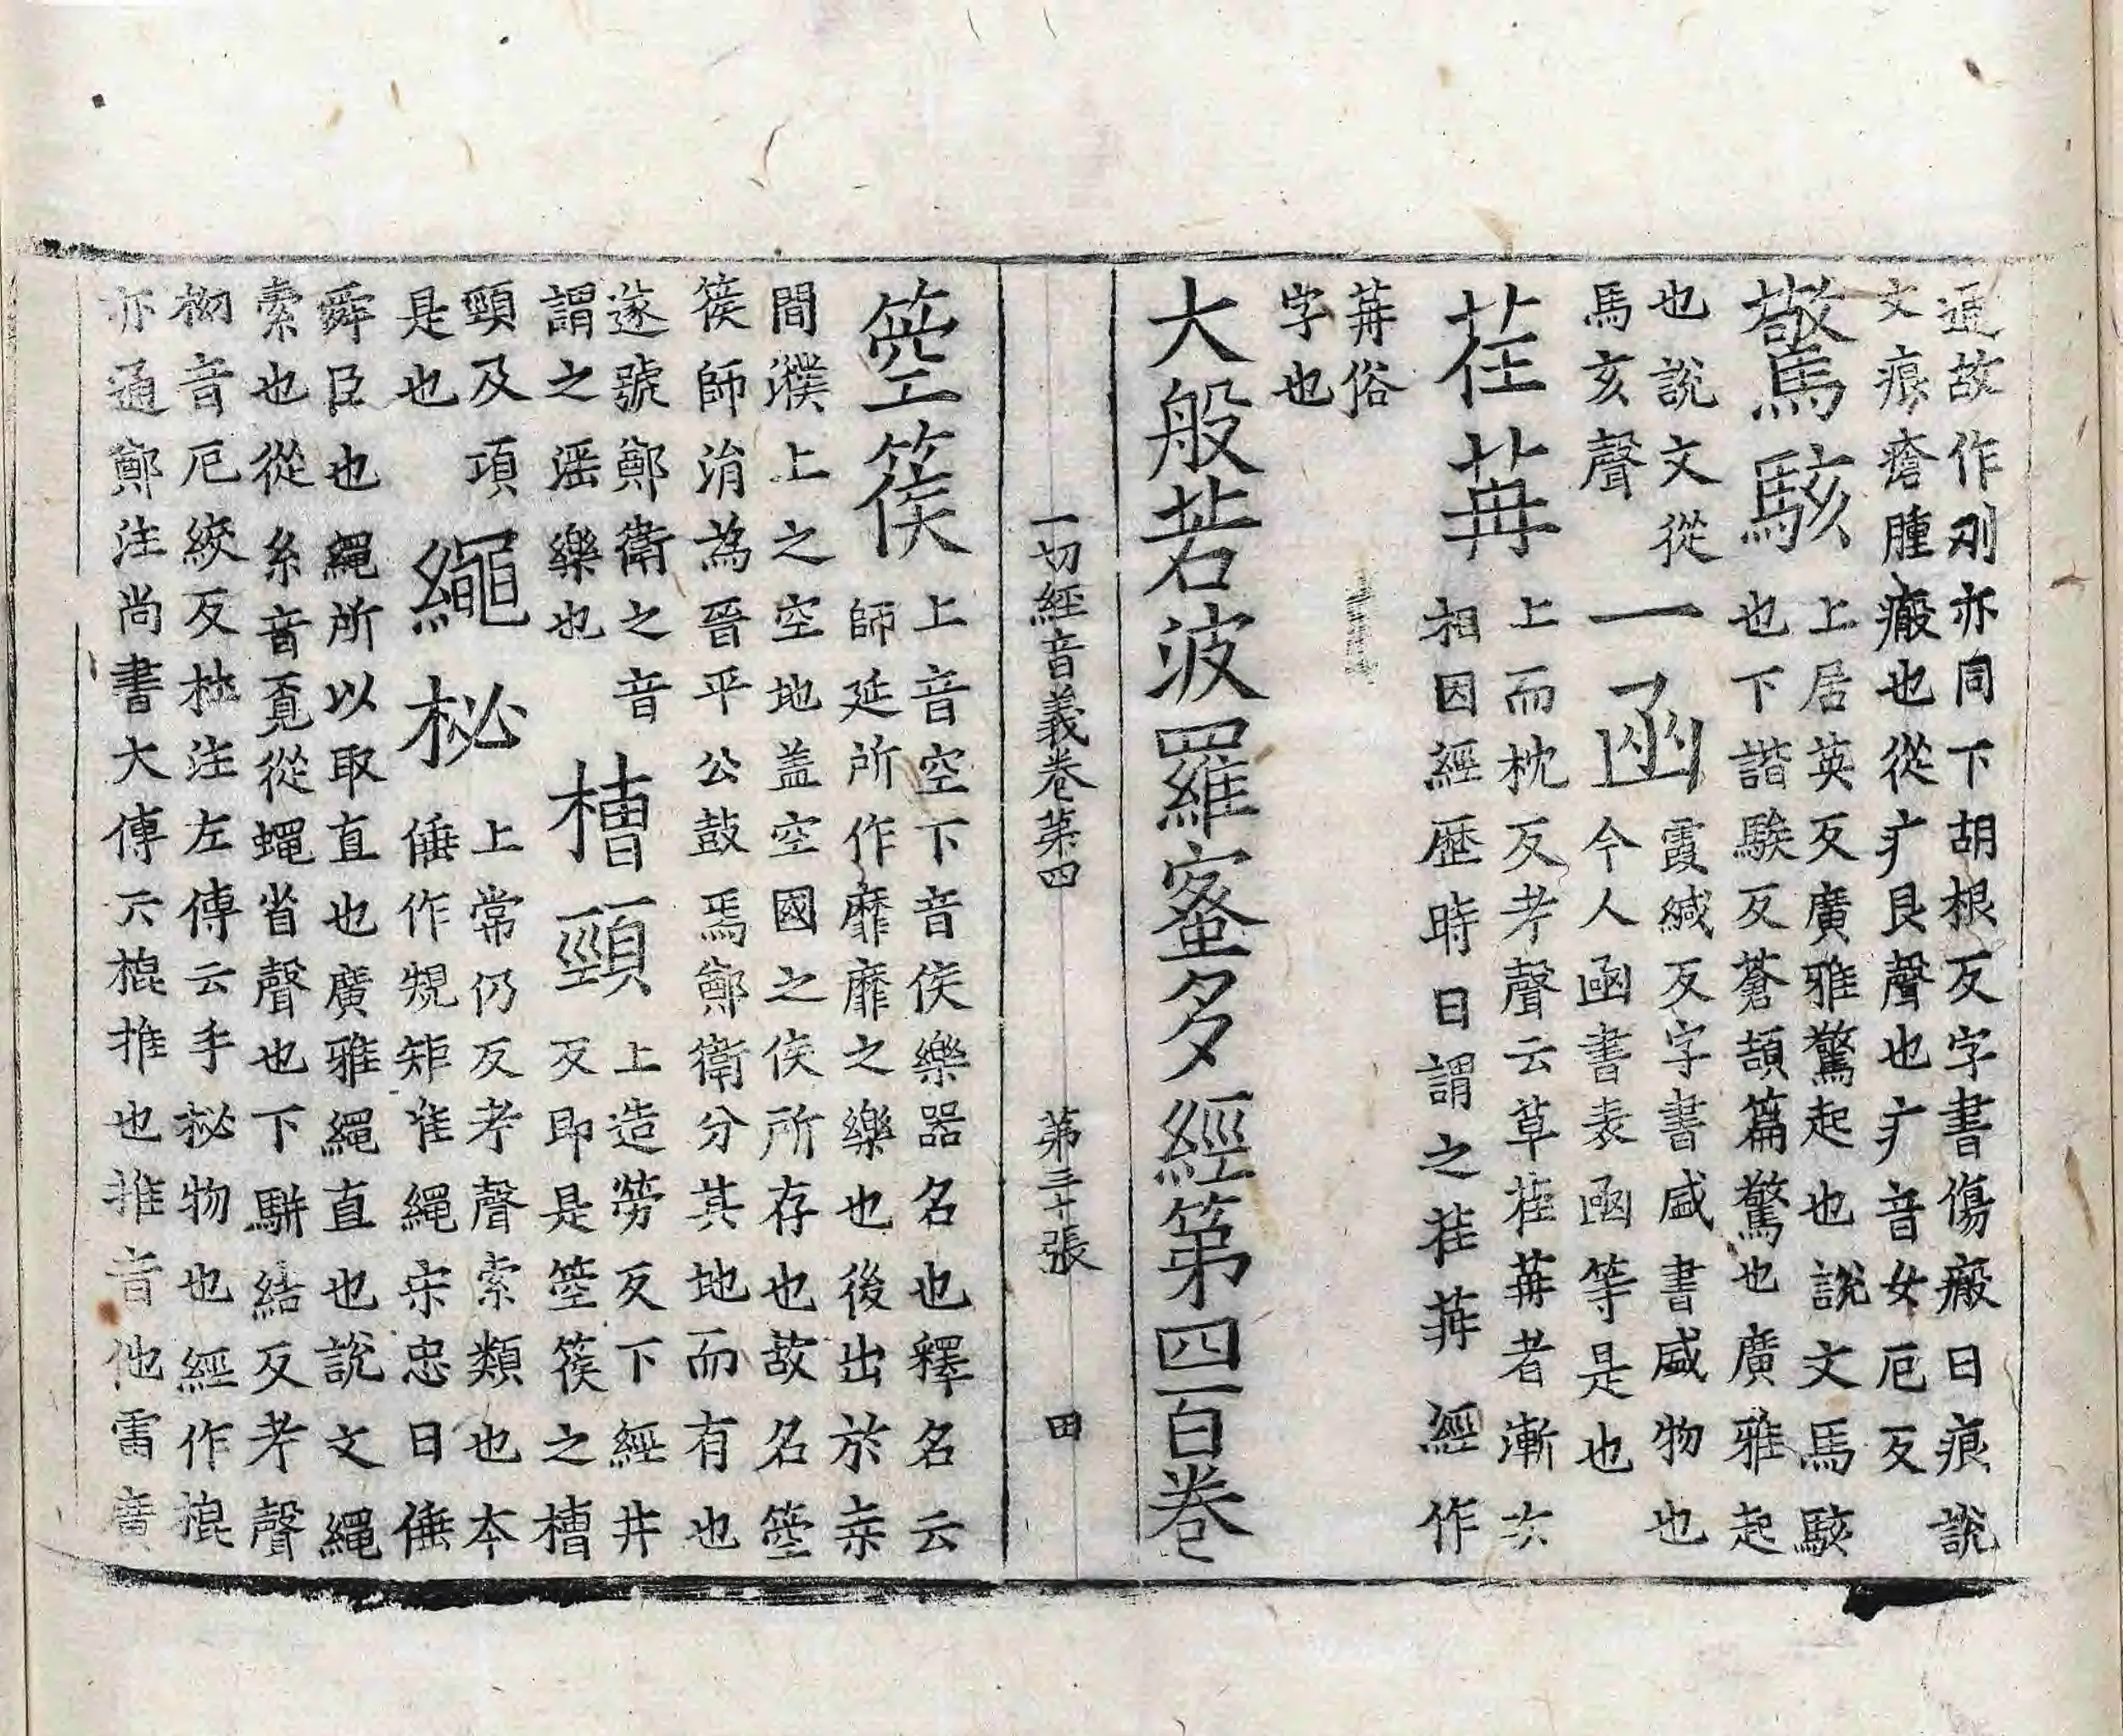 通故作刅亦同下胡根反字書傷瘢曰痕說
文痕瘡腫瘢也從疒艮聲也疒音女厄反
驚駭上居英反廣雅驚起也說文馬駭
也下諧駭反蒼頡篇驚也廣雅起
也說文從
馬亥聲
一函霞緘反字書咸書盛物也
今人函書表函等是也
荏苒上而枕反考聲云草荏苒者漸次
相因經歷時日謂之荏苒經作
苒俗
字也
大般若波羅蜜多經第四百卷
一切經音義卷第四 第三十張 田
箜篌上音空下音侯樂器名也釋名云
師延所作靡靡之樂也後出於桒
間濮上之空地盖空國之侯所存也故名箜
篌師涓為晉平公鼓焉鄭衛分其地而有也
遂號鄭衛之音
謂之淫樂也
槽頸上造勞反下經井
反即是箜篌之槽
頸及項
是也
繩柲上常仍反考聲索類也夲
倕作規矩准繩宋忠曰倕
舜臣也繩所以取直也廣雅繩直也說文繩
索也從糸音覔從蠅省聲也下駢結反考聲
柲音厄絞反柲注左傳云手柲物也經作棍
亦通鄭注尚書大傳云棍推也推音他雷廣